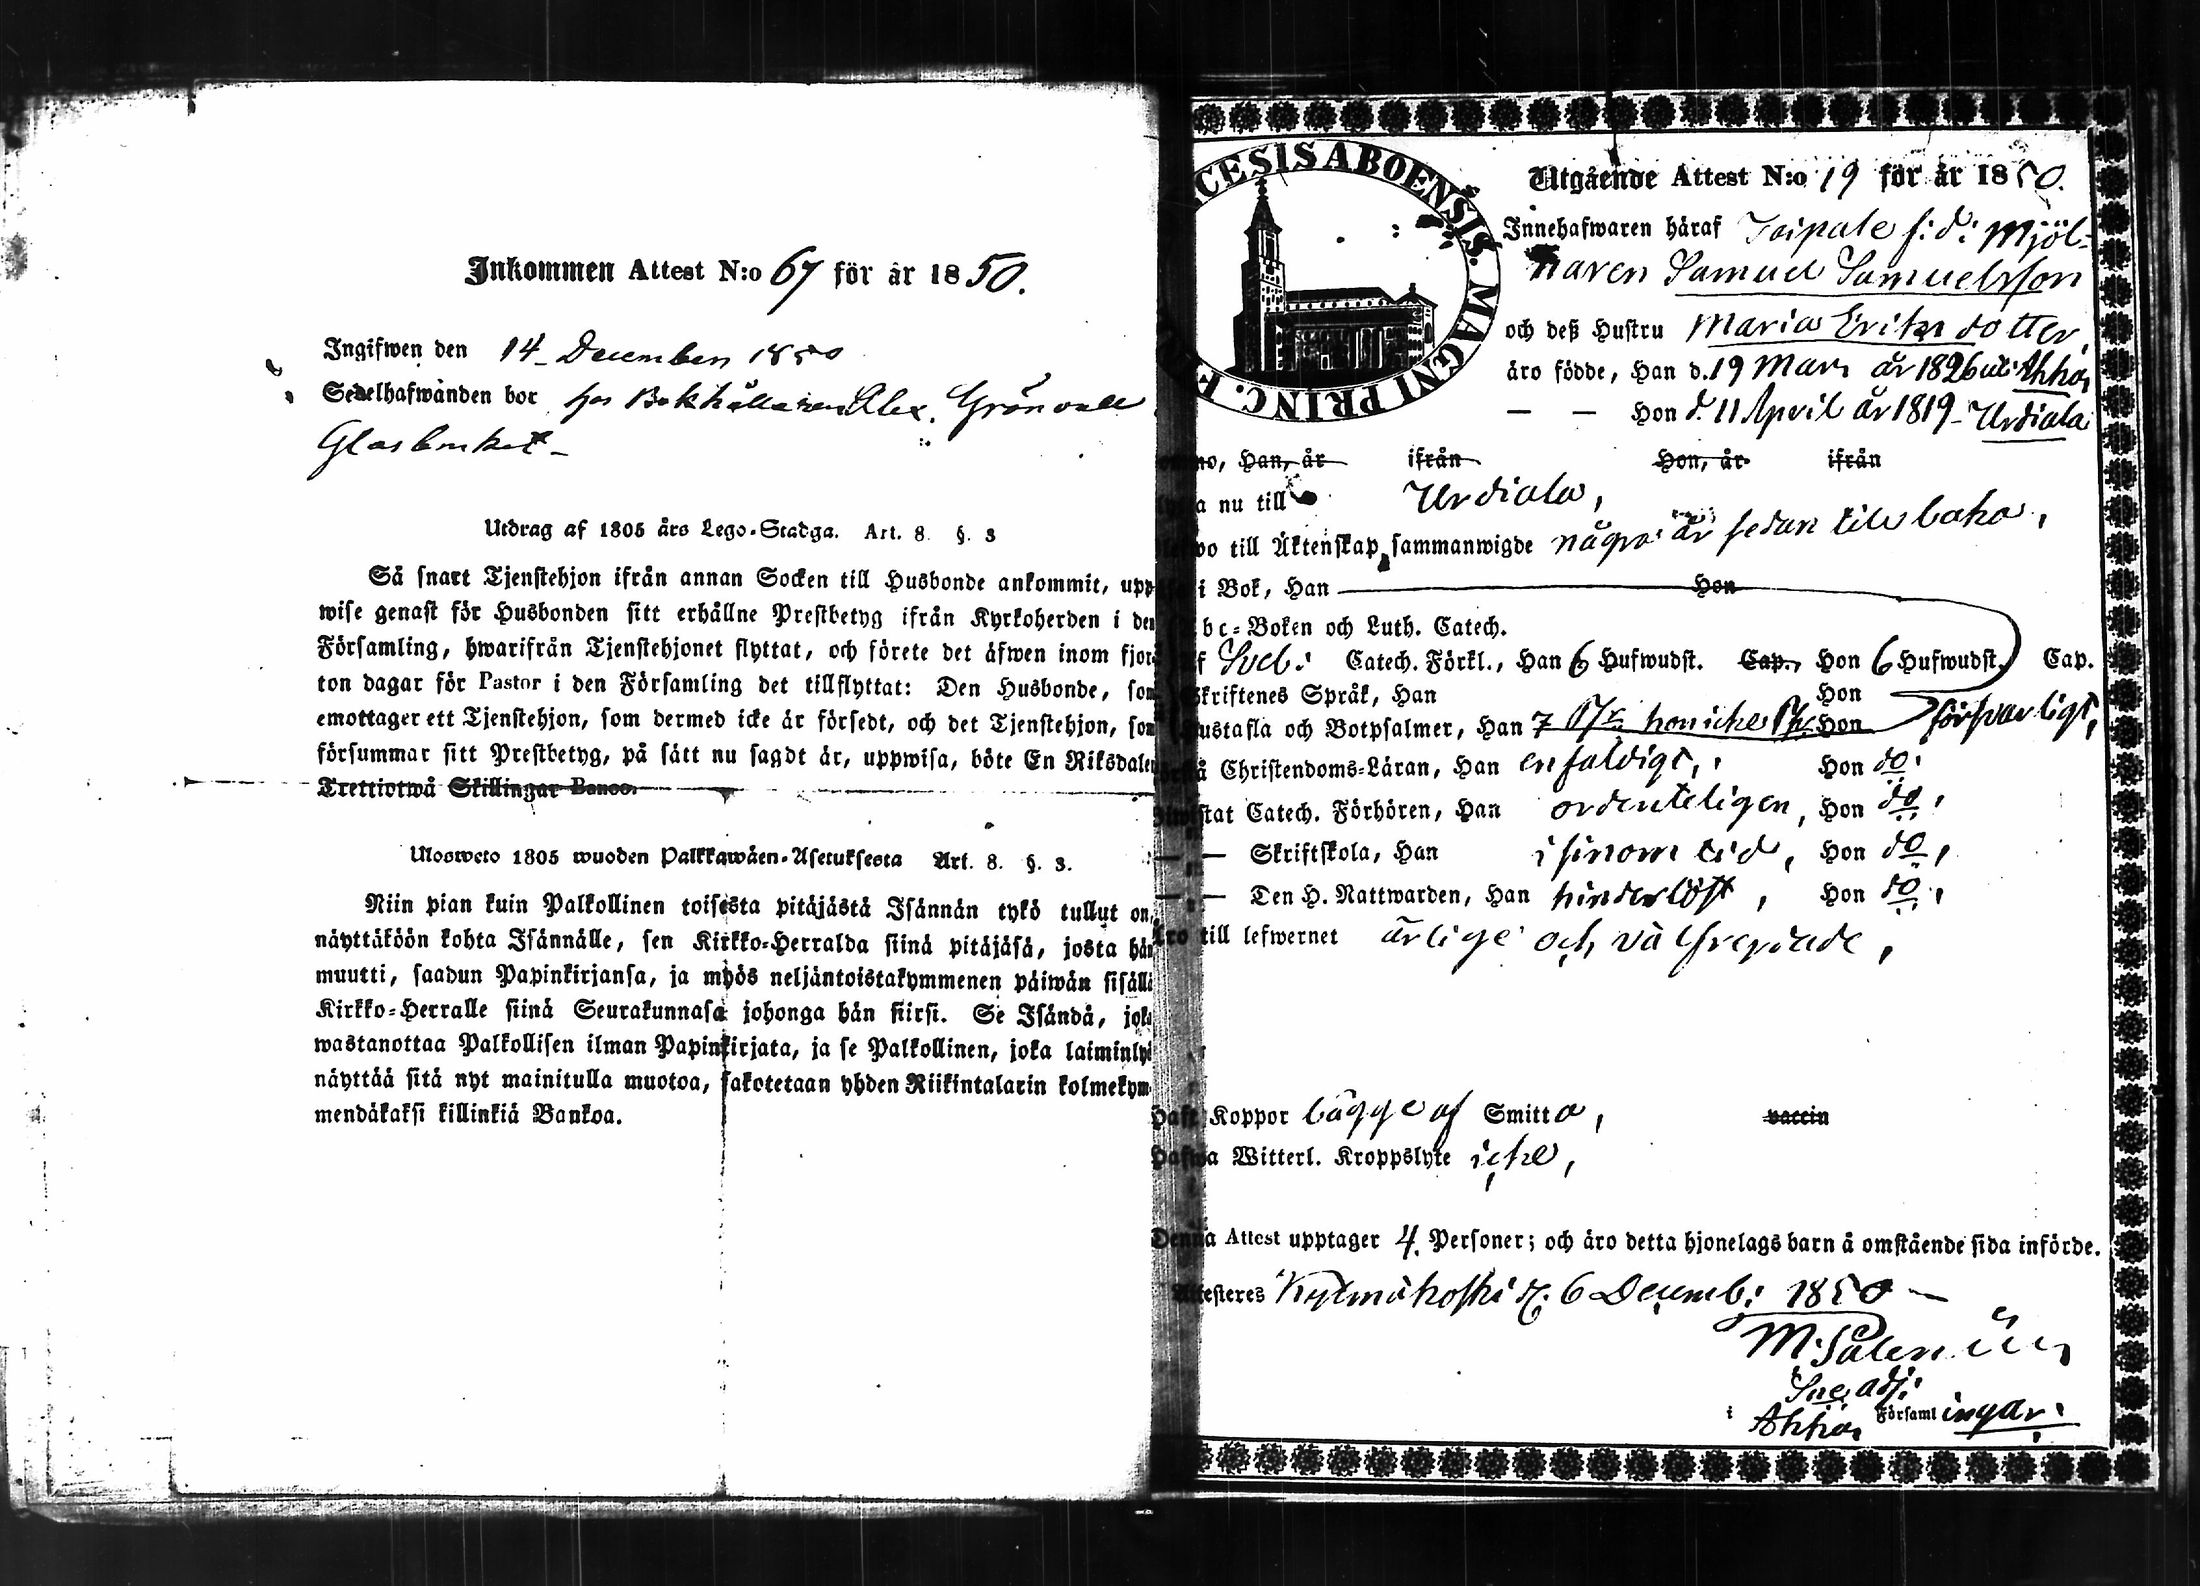 Inkommen Attest N:o 67 för år 1850.
Ingifwen den 14 December 1850
Sedelhafwanden bor hos Bokhållaren Alex. Grönvall
Glasbruket
Utdrag af 1805 års Lego-Stadga. Art. 8. §. 3
Så snart Tjenstehjon ifrån annan Socken till Husbonde ankommit, upp
wise genast för Husbonden sitt erhållne Prestbetyg ifrån Kyrkoherden i den
Församling, hwarifrån Tjenstehjonet flyttat, och förete det äfwen inom fjor
ton dagar för Pastor i den Församling det tillflyttat: Den Husbonde, som
emottager ett Tjenstehjon, som dermed icke är försedt, och det Tjenstehjon, som
försummar sitt Prestbetyg, på sätt nu sagdt är, uppwisa, böte En Riksdaler
Trettiotwå Skillingar Banco.
Ulosweto 1805 wuoden Palkkawäen-Asetuksesta Art. 8. §. 3.
Niin pian kuin Palkollinen toisesta pitäjästä Isännän tykö tullut on,
näyttäköön kohta Isännälle, sen Kirkko-Herralda siinä pitäjäsä, josta hän
muutti, saadun Papinkirjansa, ja myös neljäntoistakymmenen päiwän sisällä
Kirkko-Herralle siinä Seurakunnasa johonga hän siirsi. Se Isändä, joka
wastanottaa Palkollisen ilman Papinkirjata, ja se Palkollinen, joka laiminlyö
näyttää sitä nyt mainitulla muotoa, sakotetaan yhden Riikintalarin kolmekym-
mendäkaksi killinkiä Bankoa.
CESIS ABOENSIS. MAGNI PRINC. F
Utgående Attest N:o 19 för år 1850.
Innehafwaren häraf Toipale f: d: Mjöl-
naren Samuel Samuelsson
och deß Hustru Maria Eriksdotter,
äro födde, Han d. 19 Mars år 1826 uti Akkas
— — Hon d. 11 April år 1819 - Urdiala
Han, år ifrån Hon, år ifrån
a nu till Urdiala,
wo till Äktenskap sammanwigde några år sedan tillbaka,
i Bok, Han Hon
bc-Boken och Luth. Catech.
f Sveb: Catech. Förkl., Han 6 Hufwudst. Cap., Hon 6 Hufwudst. Cap.
Skriftenes Språk, Han Hon
Hustafla och Botpsalmer, Han 7 Ps. hon icke Ps. Hon försvarligt,
Förstå Christendoms-Läran, Han enfaldigt, Hon do.
Biwistat Catech. Förhören, Han ordenteligen, Hon do,
— — Skriftskola, Han i sinom tid, Hon do,
— — Den H. Nattwarden, Han hinderlöst, Hon do,
Äro till lefwernet ärlige och välfregdade,
Haft Koppor bägge af Smitta, vaccin
Hafwa Witterl. Kroppslyte icke,
Denna Attest upptager 4. Personer; och äro detta hjonelags barn å omstående sida införde.
Attesteres Kylmäkoski d. 6 Decemb: 1850 —
M. Salenius
Sac. adj:
i Akkas Församlingar.